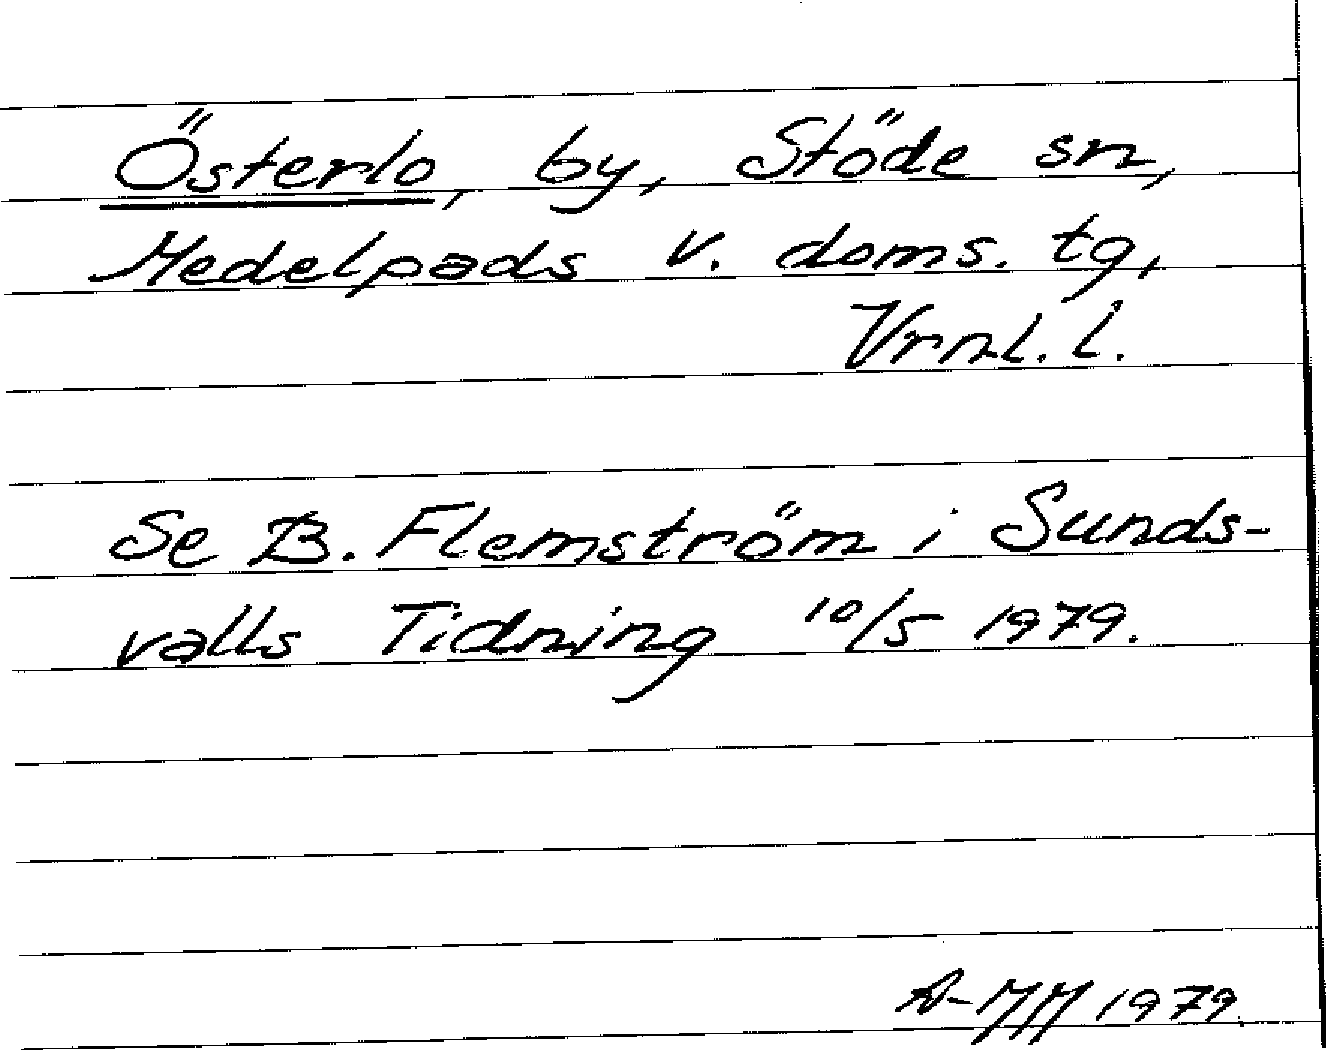 Österlo, by, Stöde sn,
Medelpads v. doms. tg,
Vrnl. l.
Se B. Flemström i Sunds-
valls Tidning 10/5 1979.
1979